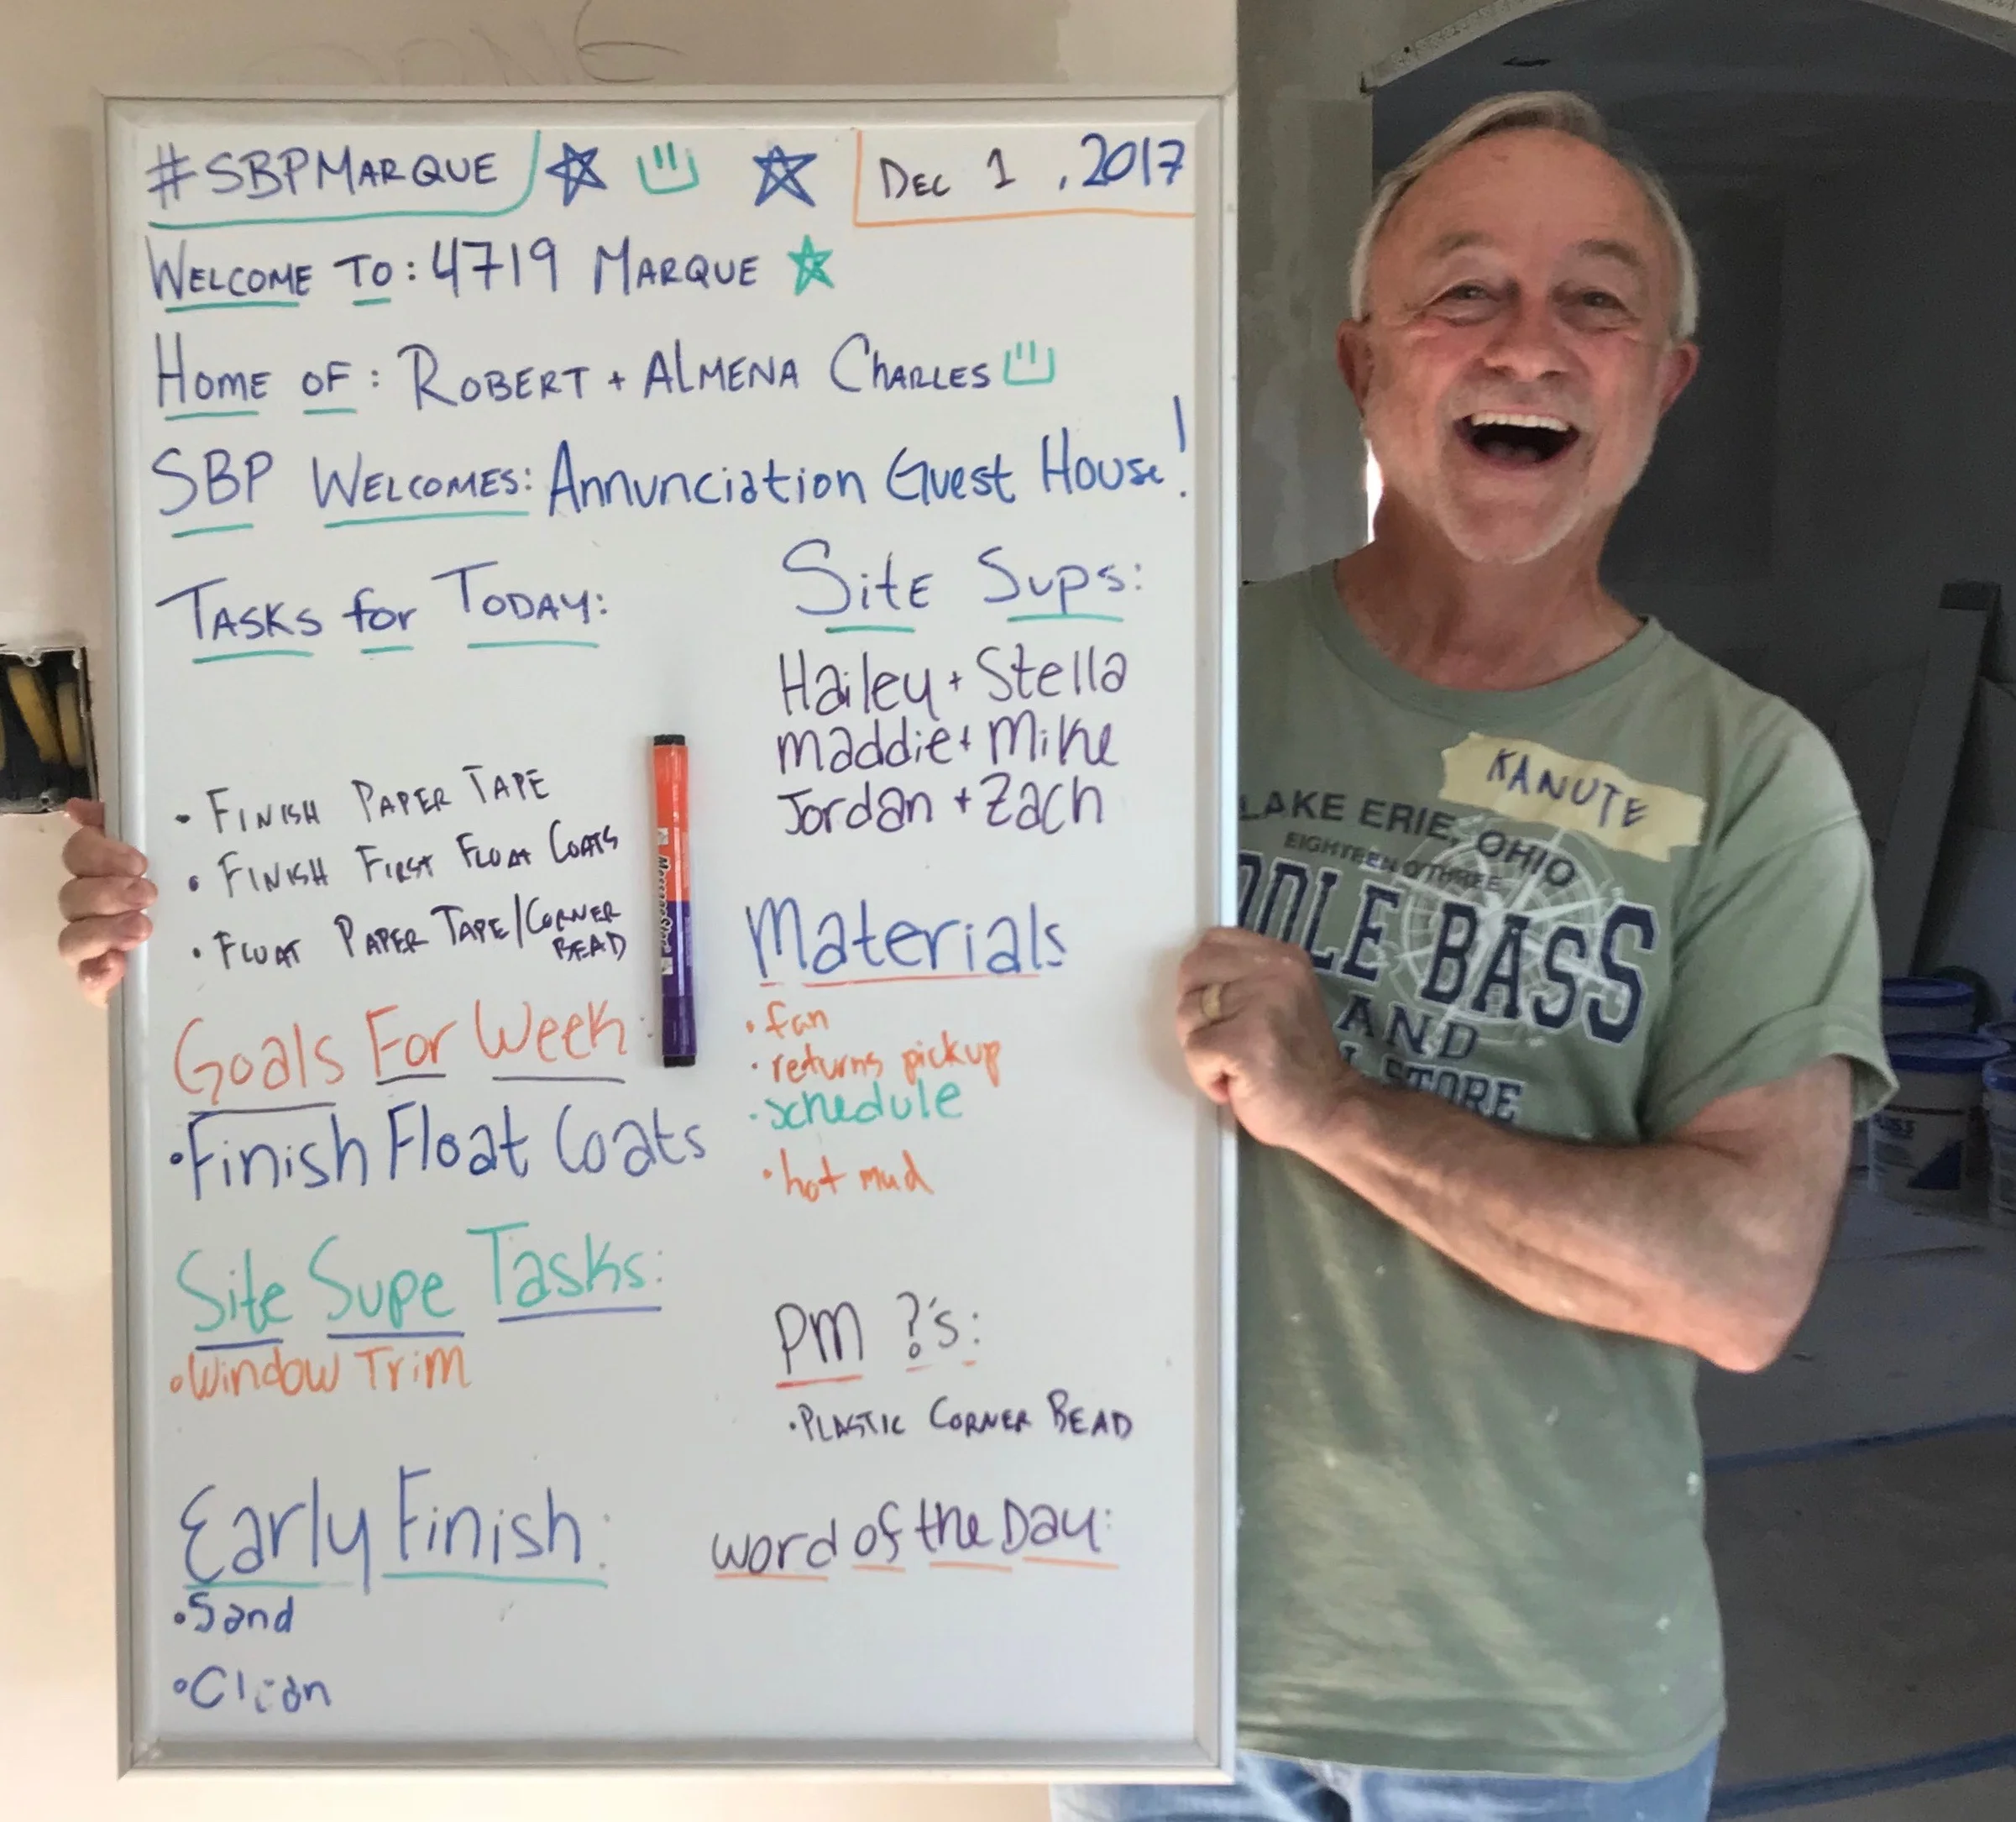 #SBPMARQUE
DEC 1, 2017
WELCOME TO: 4719 MARQUE
HOME OF: ROBERT + ALMENA CHARLES
SBP WELCOMES: Annunciation Guest House!
TASKS for TODAY:
• FINISH PAPER TAPE
• FINISH FIRST FLOAT COATS
• FLOAT PAPER TAPE/CORNER
BEAD
Goals For Week:
• Finish Float Coats
Site Supe Tasks:
• Window Trim
Early Finish:
• Sand
• Clean
Site Sups:
Hailey + Stella
Maddie + Mike
Jordan + Zach
Materials
• fan
• returns pickup
• schedule
• hot mud
PM ?'s:
• PLASTIC CORNER BEAD
Word of the Day:
KANUTE
LAKE ERIE, OHIO
EIGHTEEN O'THREE
DDLE BASS
AND
STORE